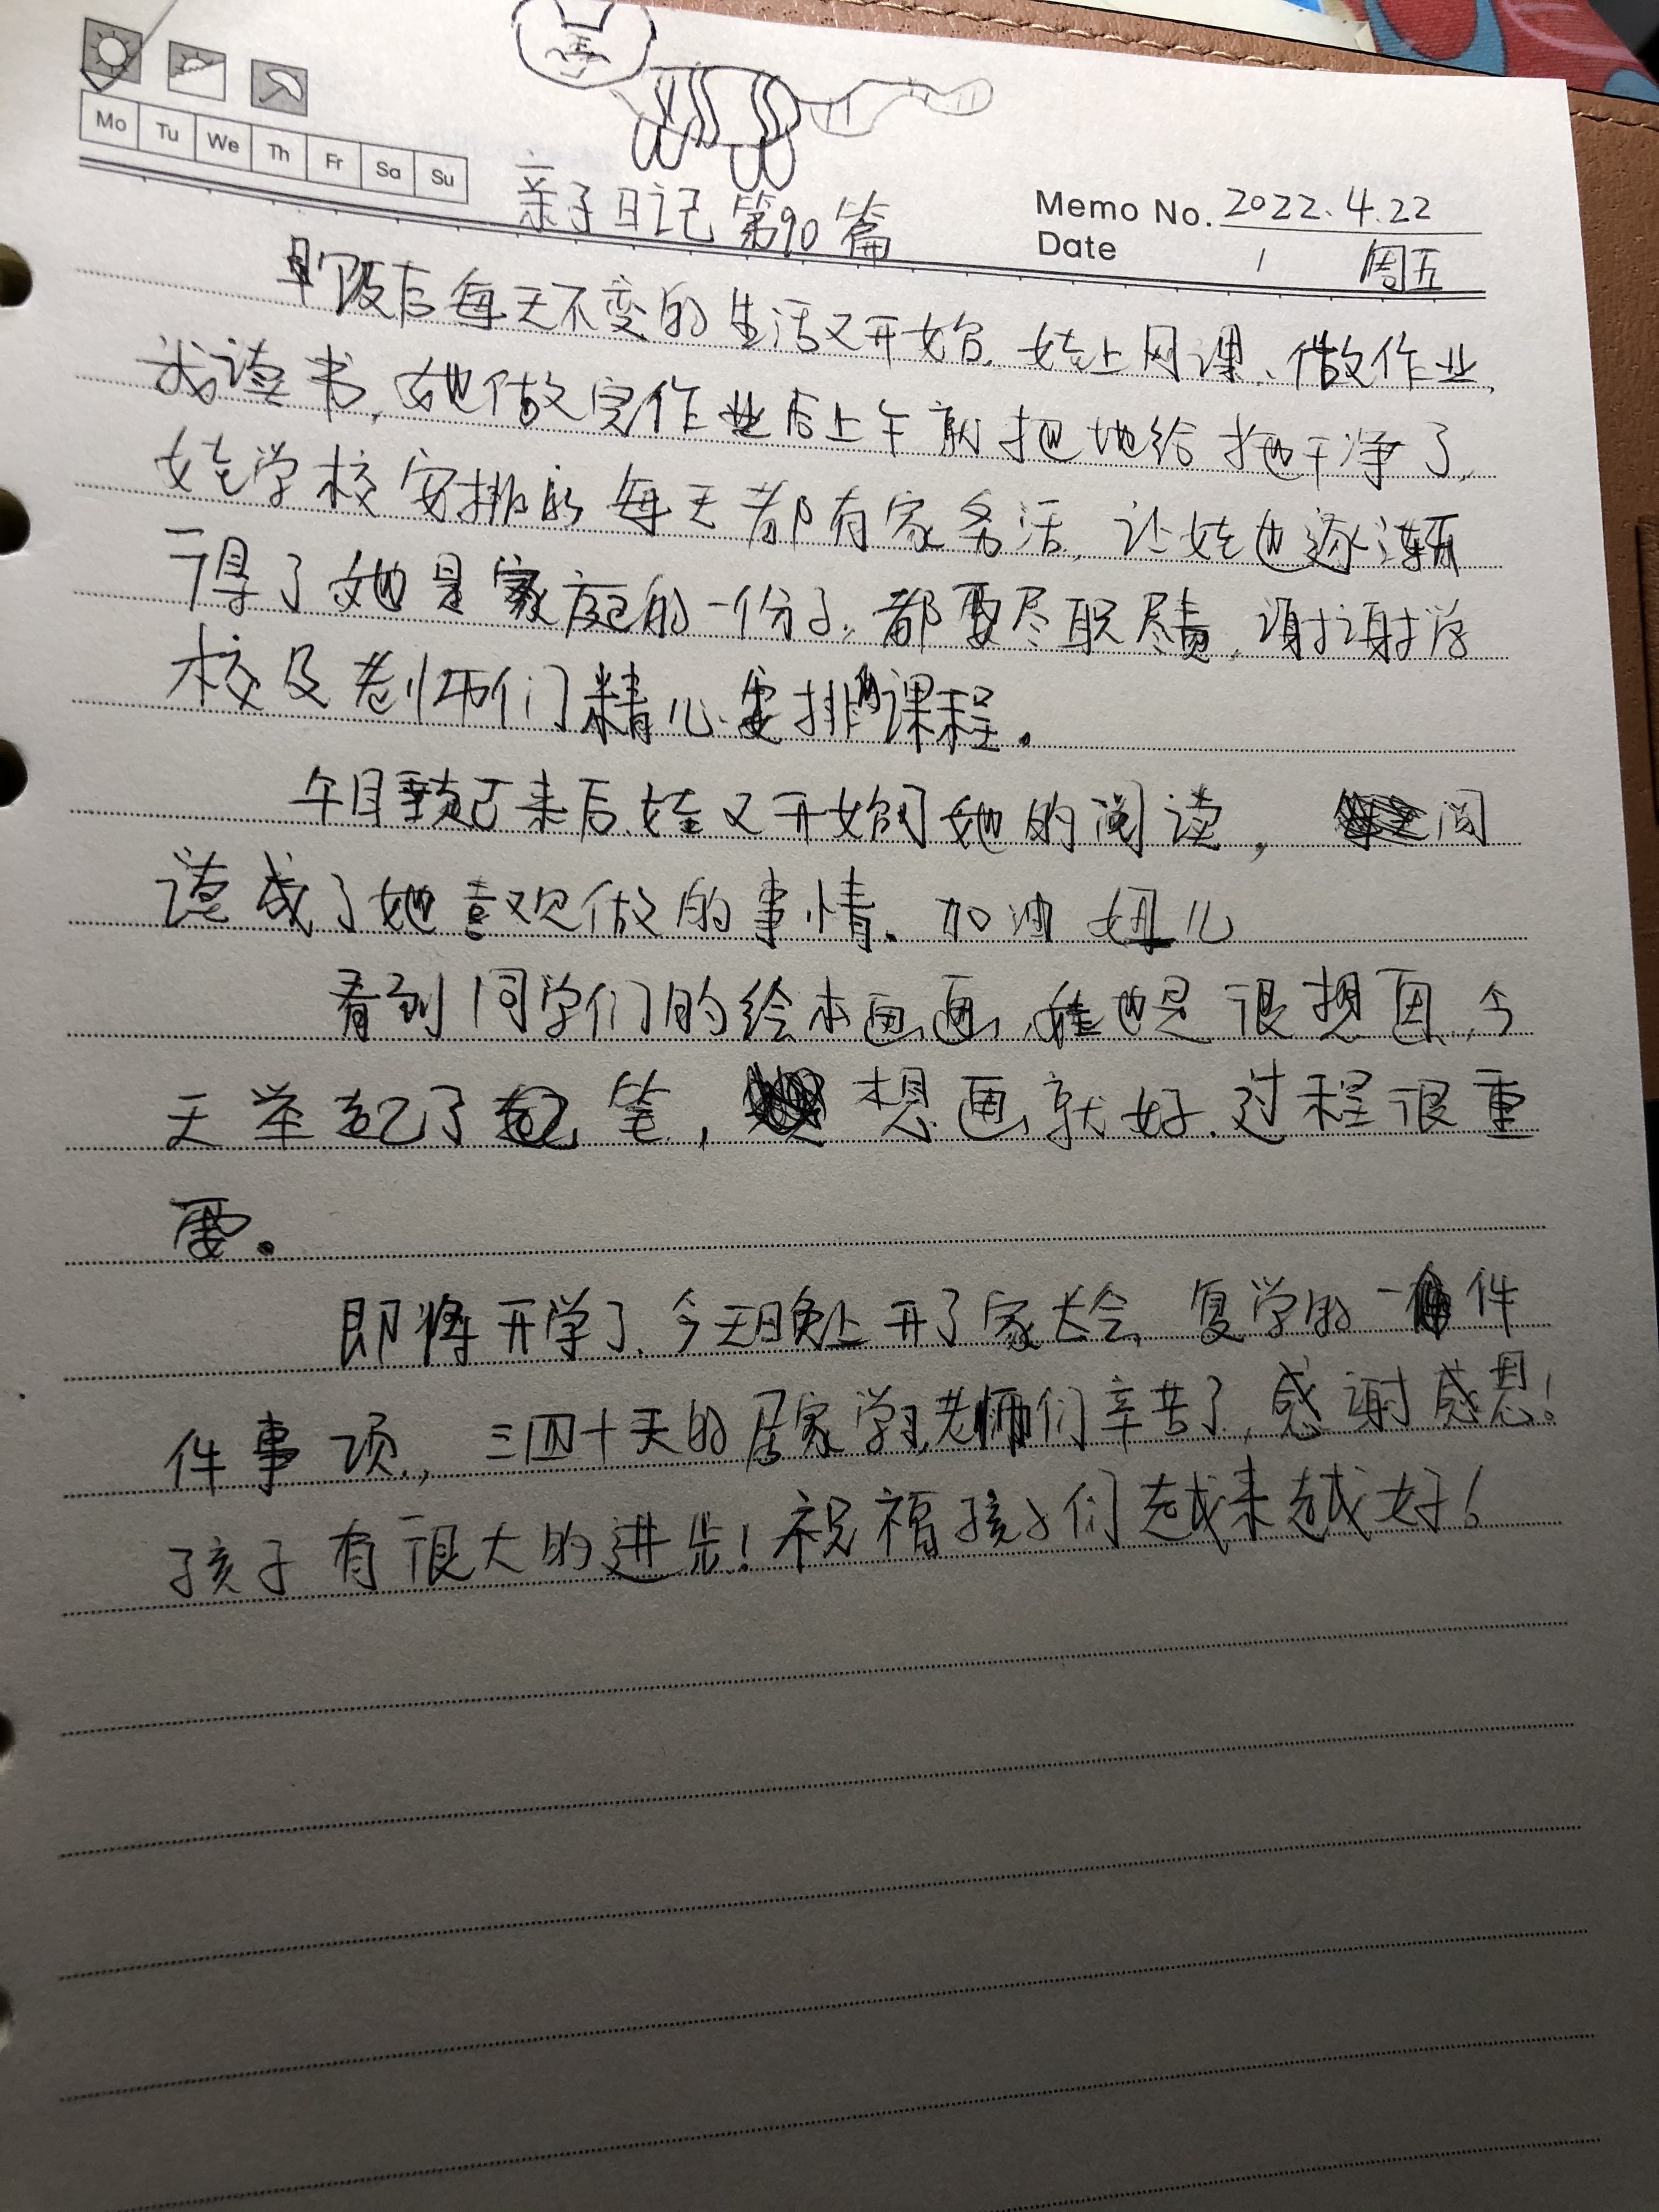 Mo Tu We Th Fr Sa Su
亲子日记 第90篇
Memo No. 2022.4.22
Date / 周五
早饭后每天不变的生活又开始,娃上网课、做作业,
我读书,她做完作业后上午前把地给拖干净了,
娃学校安排的每天都有家务活,让娃也逐渐
懂得了她是家庭的一份子,都要尽职尽责,谢谢学
校及老师们精心安排的课程。
午睡起来后,娃又开始了她的阅读,阅
读成了她喜欢做的事情。加油 妞儿
看到同学们的绘本画画,娃也是很想画,今
天举起了起笔,想画就好,过程很重
要。
即将开学了,今天晚上开了家长会,复学的一件
件事项,三四十天的居家学习,老师们辛苦了,感谢感恩!
孩子有很大的进步!祝福孩子们越来越好!